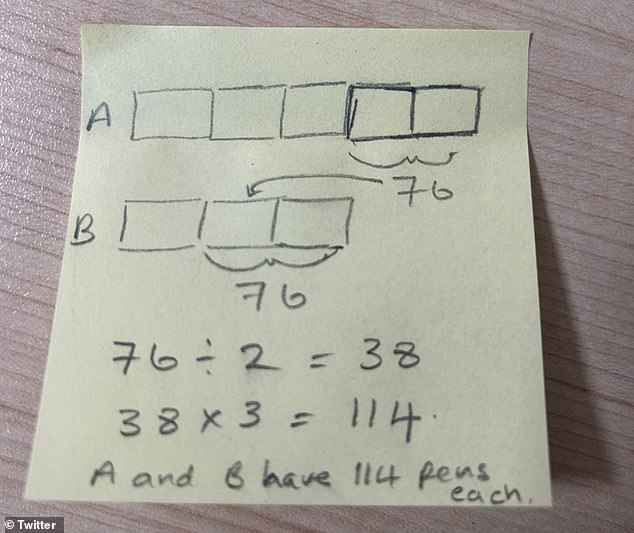 A
76
B
76
76 ÷ 2 = 38
38 × 3 = 114.
A and B have 114 pens
each.
© Twitter